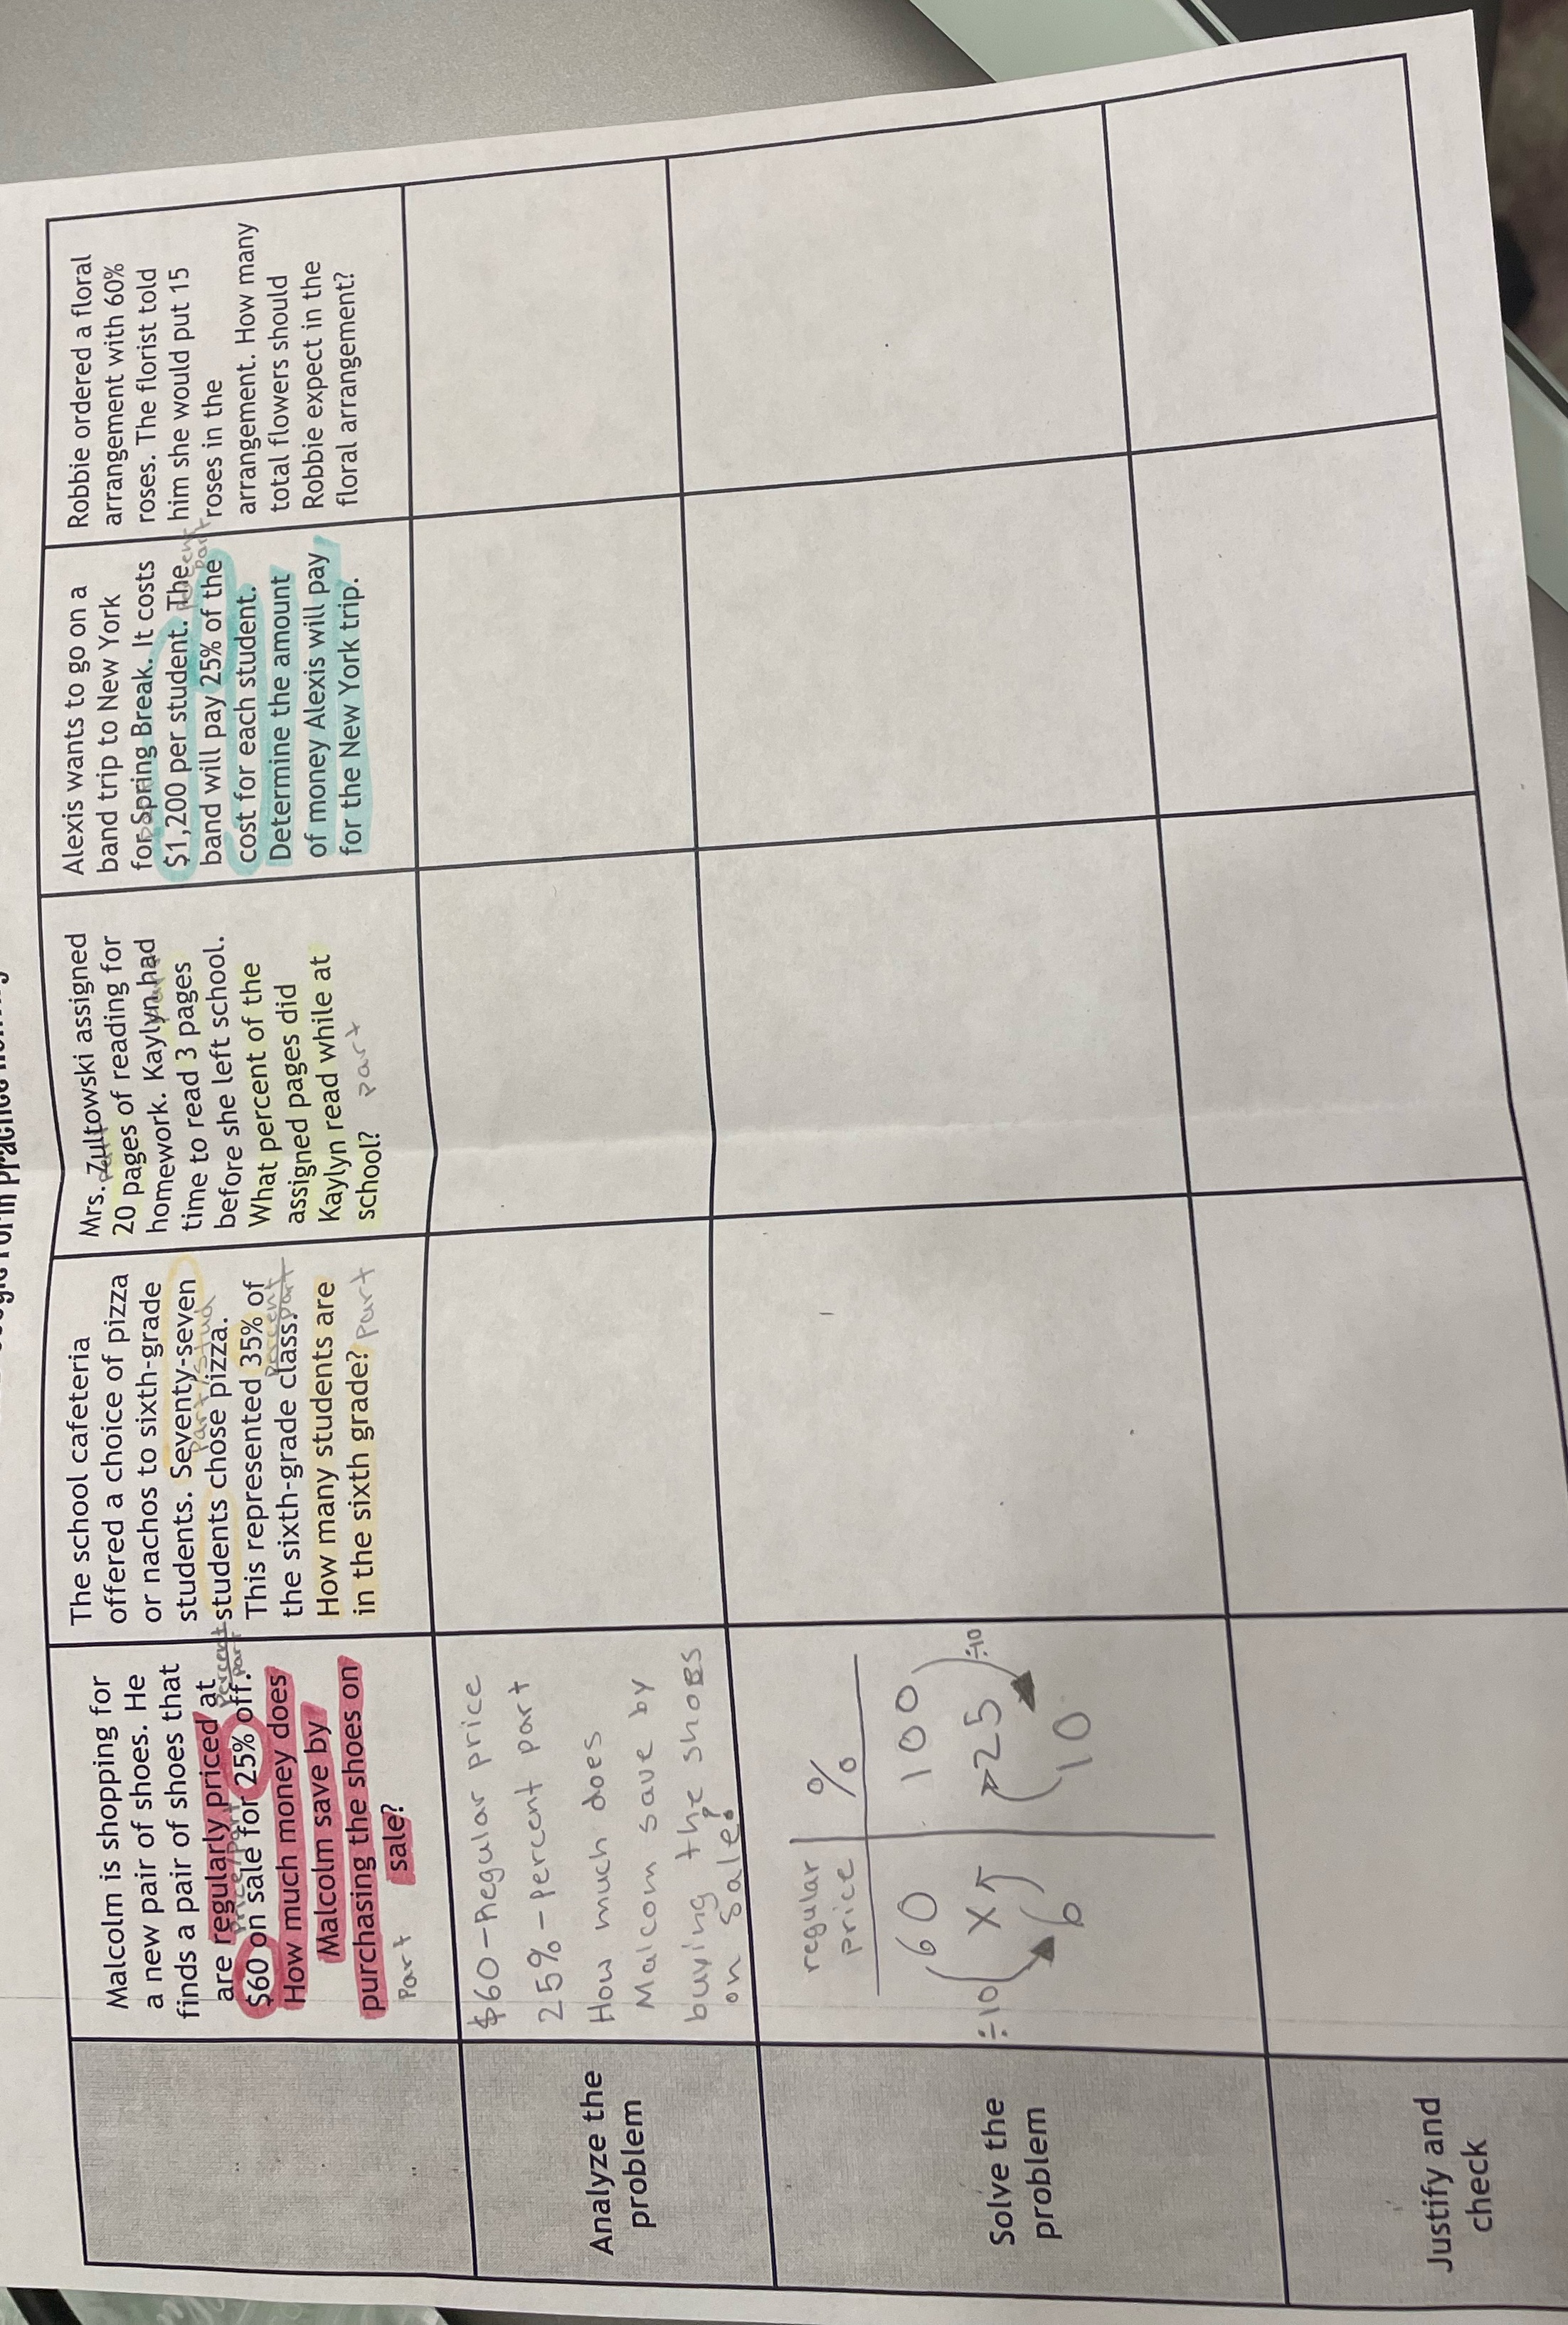 Malcolm is shopping for
a new pair of shoes. He
finds a pair of shoes that
are regularly priced at
$60 on sale for 25% off.
How much money does
Malcolm save by
purchasing the shoes on
sale?
price/part
percent
part
Part
The school cafeteria
offered a choice of pizza
or nachos to sixth-grade
students. Seventy-seven
students chose pizza.
This represented 35% of
the sixth-grade class.
How many students are
in the sixth grade?
part/stud
percent
part
part
Mrs. Zultowski assigned
20 pages of reading for
homework. Kaylyn had
time to read 3 pages
before she left school.
What percent of the
assigned pages did
Kaylyn read while at
school?
part
Alexis wants to go on a
band trip to New York
for Spring Break. It costs
$1,200 per student. The
band will pay 25% of the
cost for each student.
Determine the amount
of money Alexis will pay
for the New York trip.
percent
part
Robbie ordered a floral
arrangement with 60%
roses. The florist told
him she would put 15
roses in the
arrangement. How many
total flowers should
Robbie expect in the
floral arrangement?
Analyze the
problem
$60-Regular price
25%-percent part
How much does
Malcom save by
buying the shoes
on sale?
Solve the
problem
regular
price %
60 100
x 25
6 10
÷10 ÷10
Justify and
check